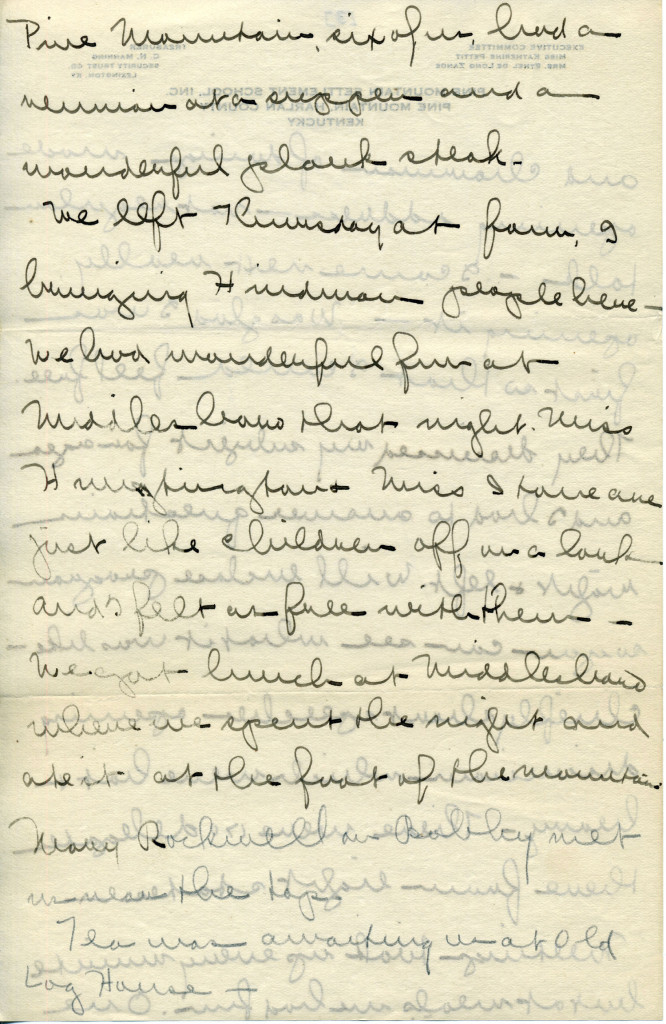 Pine Mountain, six of us had a
reunion at a supper and a
wonderful plank steak.
We left Thursday at four, I
bringing Hindman people here -
We had wonderful fun at
Middlesboro that night. Miss
Huntington & Miss Stone are
just like children off on a lark
and I felt as free with them -
We got lunch at Middlesboro
where we spent the night and
ate it at the foot of the mountain.
Mary Rockwell on Bobby met
us near the top.
Tea was awaiting us at Old
Log House +